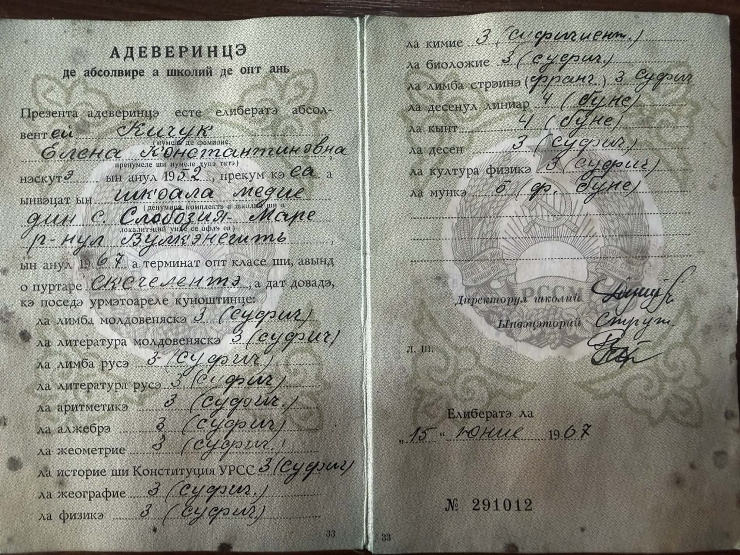 АДЕВЕРИНЦЭ
де абсолвире а школий де опт ань
Презента адеверинцэ есте елибератэ абсол-
вентей Кичук
(нумеле де фамилие,
Елена Константиновна
пренумеле ши нумеле дупэ татэ)
нэскутэ ын анул 1952, прекум кэ еа а
ынвэцат ын школа медие
(денумиря комплектэ а школий ши а
дин с. Слобозия-Маре
локалитэций унде се афлэ еа)
р-нул Вулкэнешть
ын анул 1967 а терминат опт класе ши, авынд
о пуртаре екчелентэ, а дат довадэ,
кэ поседэ урмэтоареле куноштинце:
ла лимба молдовеняскэ 3 (суфич)
ла литература молдовеняскэ 3 (суфич)
ла лимба русэ 3 (суфич)
ла литература русэ 3 (суфич)
ла аритметикэ 3 (суфич.)
ла алжебрэ 3 (суфич)
ла жеометрие 3 (суфич.)
ла историе ши Конституция УРСС 3 (суфич)
ла жеографие 3 (суфич.)
ла физикэ 3 (суфич)
33
ла химие 3 (суфичиент.)
ла биоложие 3 (суфич)
ла лимба стрэинэ (франг.) 3 суфич
ла десенул линиар 4 (буне)
ла кынт 4 (буне)
ла десен 3 (суфич)
ла културa физикэ 3 (суфич)
ла мункэ 5 (ф. буне)
РССМ
Директорул школий
Ынвэцэторий
Л. Ш.
Елибератэ ла
„15" юние 1967
№ 291012
33